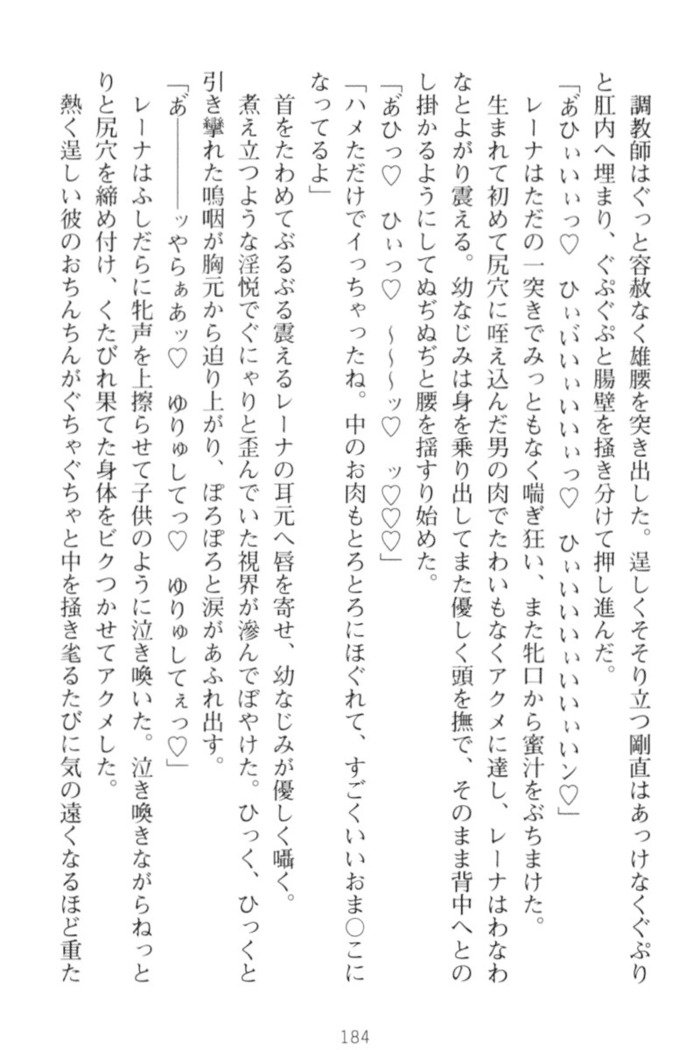 調教師はぐっと容赦なく雄腰を突き出した。逞しくそそり立つ剛直はあっけなくぐぷり
と肛内へ埋まり、ぐぷぐぷと腸壁を掻き分けて押し進んだ。
「あ゛ひぃいぃっ♡　ひぃい゛いぃいぃいぃっ♡　ひぃいいいぃいぃいン♡」
レーナはただの一突きでみっともなく喘ぎ狂い、また牝口から蜜汁をぶちまけた。
生まれて初めて尻穴に咥え込んだ男の肉でたわいもなくアクメに達し、レーナはわなわ
なとよがり震える。幼なじみは身を乗り出してまた優しく頭を撫で、そのまま背中へとの
し掛かるようにしてぬぢぬぢと腰を揺すり始めた。
「あ゛ひっ♡　ひぃっ♡　～～～ッ♡　ッ♡♡♡」
「ハメただけでイっちゃったね。中のお肉もとろとろにほぐれて、すごくいいおま○こに
なってるよ」
首をたわめてぶるぶる震えるレーナの耳元へ唇を寄せ、幼なじみが優しく囁く。
煮え立つような淫悦でぐにゃりと歪んでいた視界が滲んでぼやけた。ひっく、ひっくと
引き攣れた嗚咽が胸元から迫り上がり、ぽろぽろと涙があふれ出す。
「あ゛――――ッやらぁあッ♡　ゆりゅしてっ♡　ゆりゅしてぇっ♡」
レーナはふしだらに牝声を上擦らせて子供のように泣き喚いた。泣き喚きながらねっと
りと尻穴を締め付け、くたびれ果てた身体をビクつかせてアクメした。
熱く逞しい彼のおちんちんがぐちゃぐちゃと中を掻き毟るたびに気の遠くなるほど重た
184